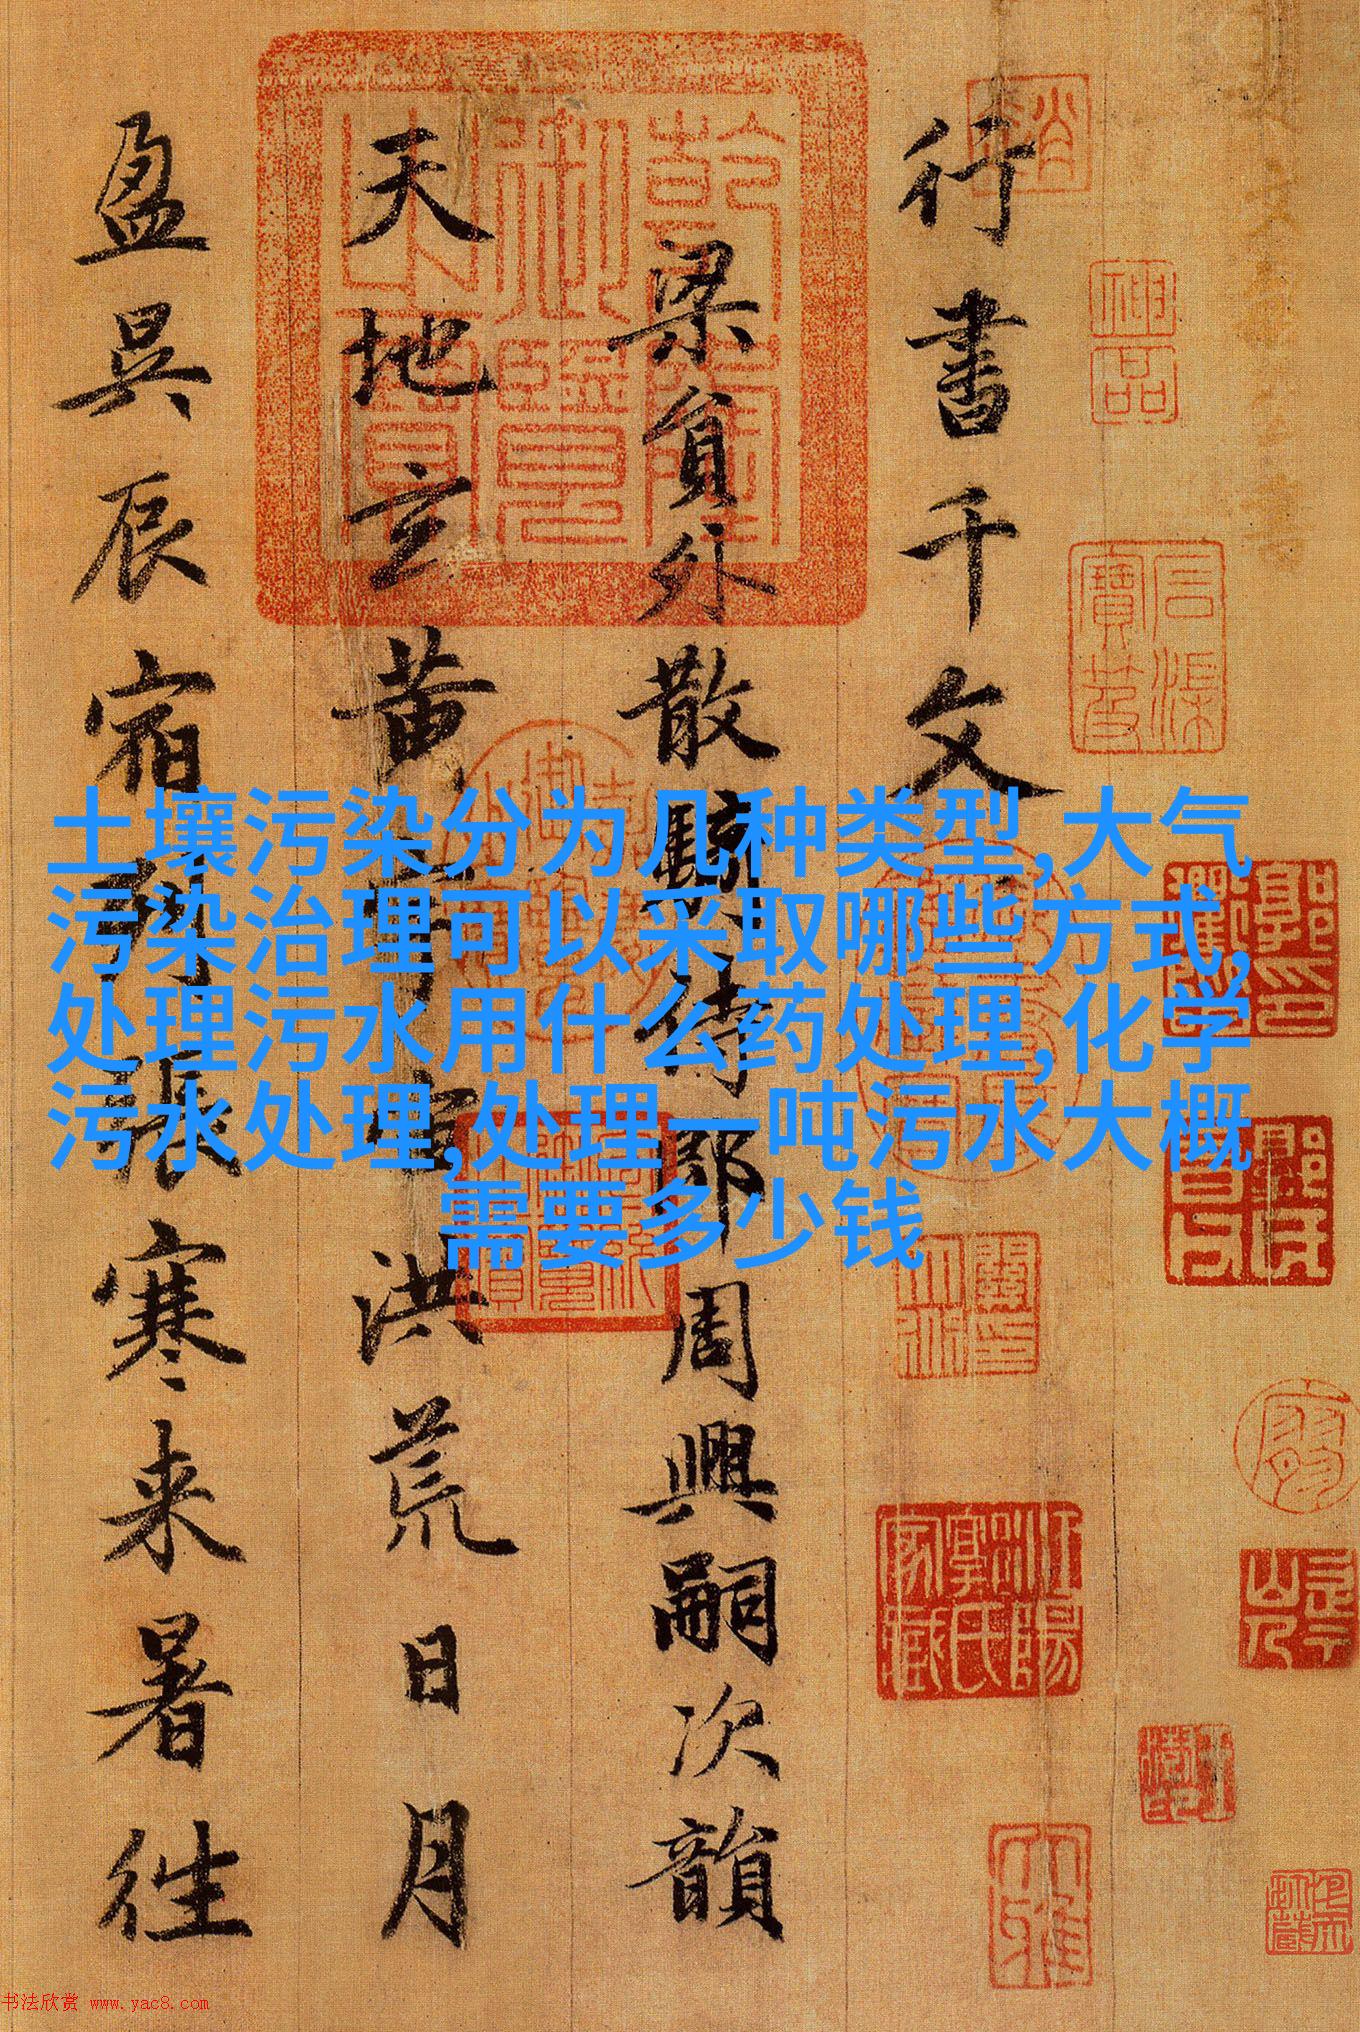 行書千文
梁員外散騎侍郎周興嗣次韻
天地玄黃宇宙洪荒日月
盈昃辰宿列張寒来暑往
土壤污染分为几种类型,大气
污染治理可以采取哪些方式,
处理污水用什么药处理,化学
污水处理,处理一吨污水大概
需要多少钱
书法欣赏 www.yac8.com